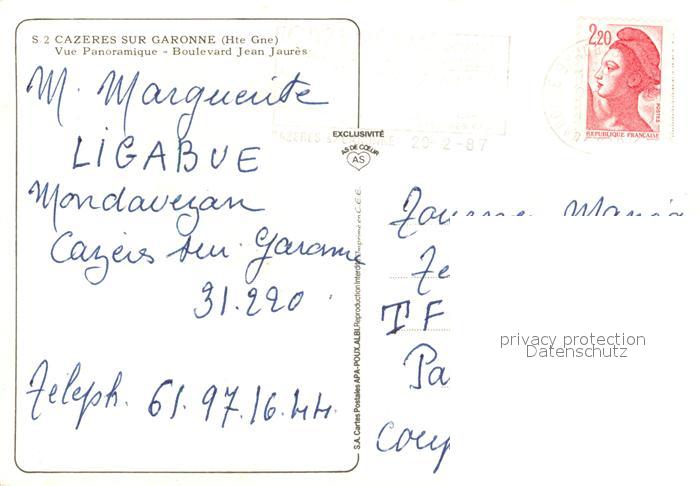 S 2 CAZÈRES SUR GARONNE (Hte Gne)
Vue Panoramique - Boulevard Jean Jaurès
M. Marguerite
LIGABUE
Mondavezan
Cazères sur Garonne
31.220
Teleph. 61.97.16.44.
EXCLUSIVITÉ
AS DE CŒUR
AS
S.A. Cartes Postales APA-POUX, ALBI. Reproduction Interdite Imprimé en C.E.E.
20-2-87
2,20
POSTES
REPUBLIQUE FRANÇAISE
TF
Pa
coup
privacy protection
Datenschutz